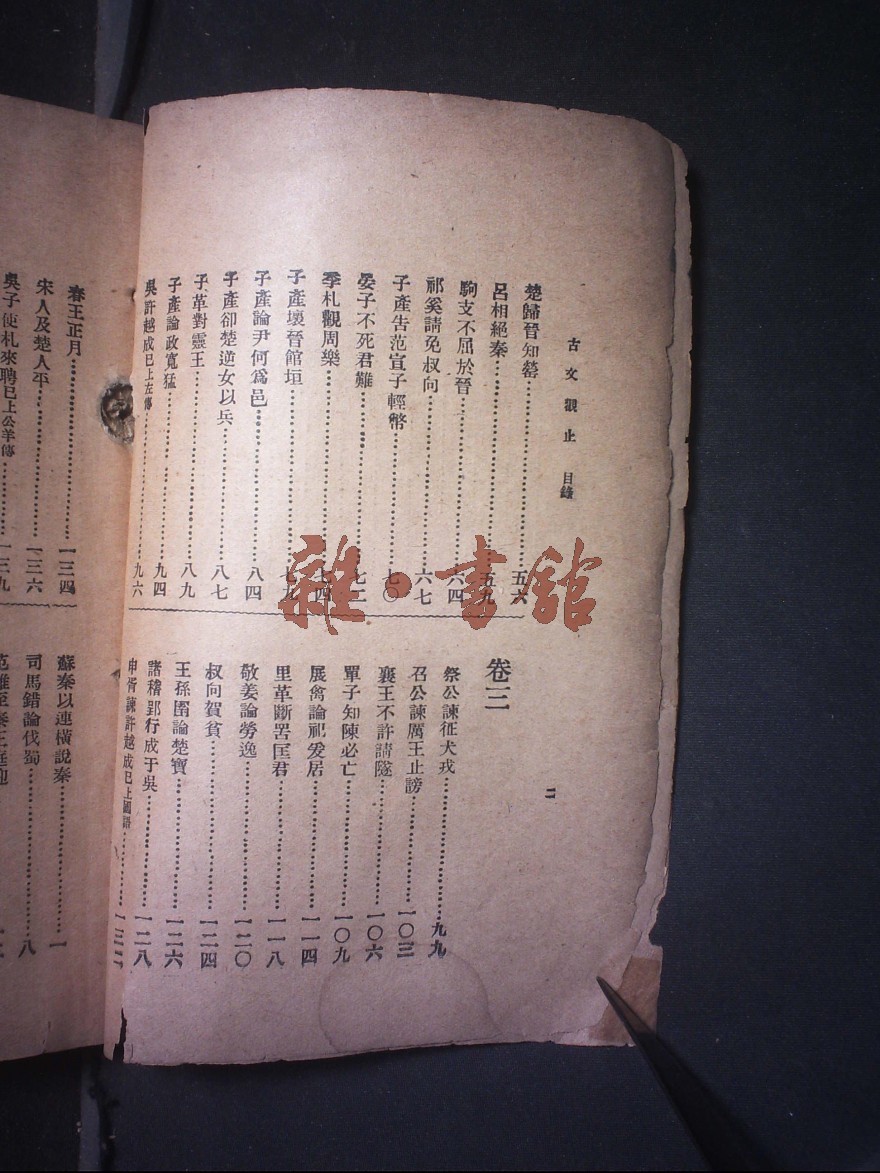 古文觀止 目錄
二
楚歸晉知罃 五六
呂相絕秦 五九
駒支不屈於晉 六四
祁奚請免叔向 六七
子產告范宣子輕幣 七〇
晏子不死君難 七二
季札觀周樂 七四
子產壞晉館垣 七九
子產論尹何爲邑 八四
子產卻楚逆女以兵 八七
子革對靈王 八九
子產論政寬猛 九四
吳許越成已上左傳 九六
卷三
祭公諫征犬戎 九九
召公諫厲王止謗 一〇三
襄王不許請隧 一〇六
單子知陳必亡 一〇九
展禽論祀爰居 一一四
里革斷罟匡君 一一八
敬姜論勞逸 一二〇
叔向賀貧 一二四
王孫圉論楚寶 一二六
諸稽郢行成于吳 一二八
申胥諫許越成已上國語 一三二
春王正月 一三四
宋人及楚人平 一三六
吳子使札來聘已上公羊傳 一三九
蘇秦以連橫說秦 一
司馬錯論伐蜀 八
范雎至秦王庭迎
雜·書館